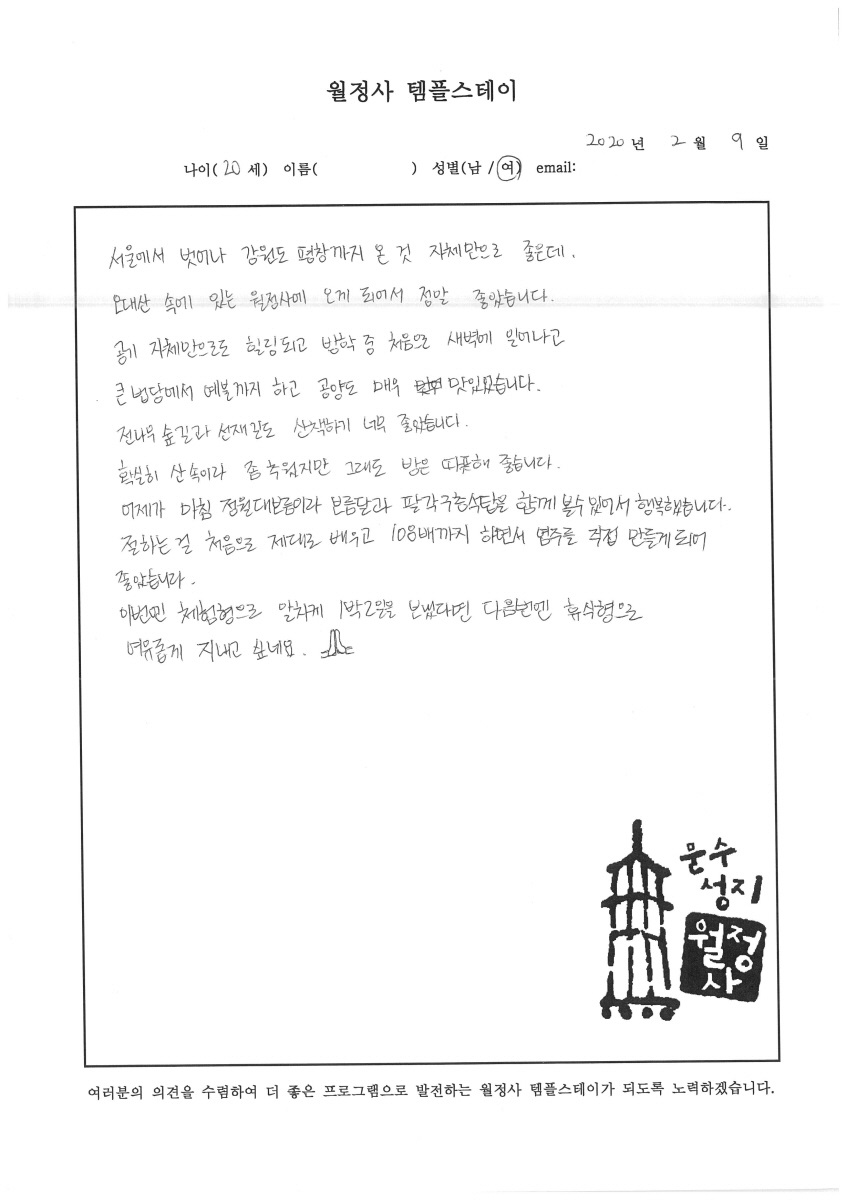 월정사 템플스테이
2020 년 2 월 9 일
나이( 20 세) 이름( ) 성별(남 / 여) email:
서울에서 벗어나 강원도 평창까지 온 것 자체만으로 좋은데,
오대산 속에 있는 월정사에 오게 되어서 정말 좋았습니다.
공기 자체만으로도 힐링되고 방학 중 처음으로 새벽에 일어나고
큰 법당에서 예불까지 하고 공양도 매우 맛있었습니다.
전나무 숲길과 선재길도 산책하기 너무 좋았습니다.
확실히 산속이라 좀 추웠지만 그래도 방은 따뜻해 좋습니다.
어제가 마침 정월대보름이라 보름달과 팔각구층석탑을 함께 볼수 있어서 행복했습니다.
절하는 걸 처음으로 제대로 배우고 108배까지 하면서 염주를 직접 만들게 되어
좋았습니다.
이번엔 체험형으로 알차게 1박2일을 보냈다면 다음번엔 휴식형으로
여유롭게 지내고 싶네요.
문수
성지
월정
사
여러분의 의견을 수렴하여 더 좋은 프로그램으로 발전하는 월정사 템플스테이가 되도록 노력하겠습니다.